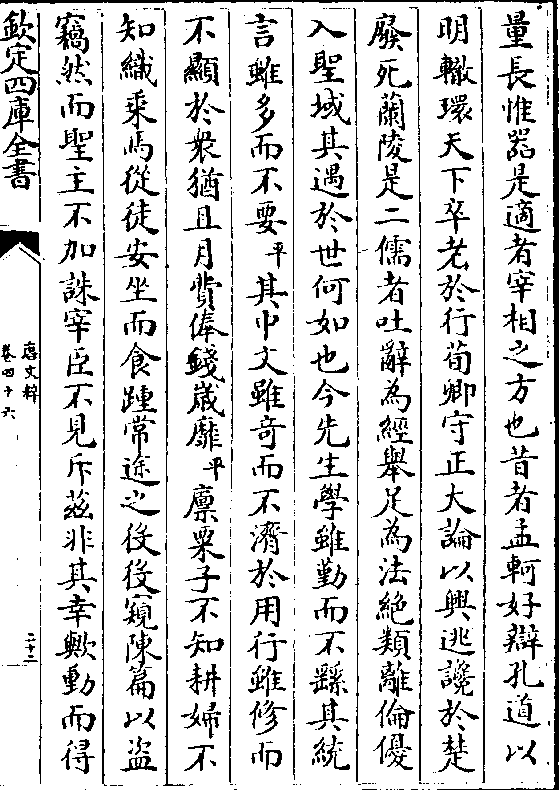 量長惟器是適者宰相之方也昔者孟軻好辯孔道以
明轍環天下卒老於行荀卿守正大論以興逃讒於楚
廢死蘭陵是二儒者吐辭為經舉足為法絶類離倫優
入聖域其遇於世何如也今先生學雖勤而不繇其統
言雖多而不要平其中文雖奇而不濟於用行雖修而
不顯於衆猶且月費俸錢嵗靡平廪粟子不知耕婦不
知織乘馬從徒安坐而食踵常途之役役窺陳篇以盜
竊然而聖主不加誅宰臣不見斥茲非其幸歟動而得
欽定四庫全書
唐文粹
卷四十六
二十二